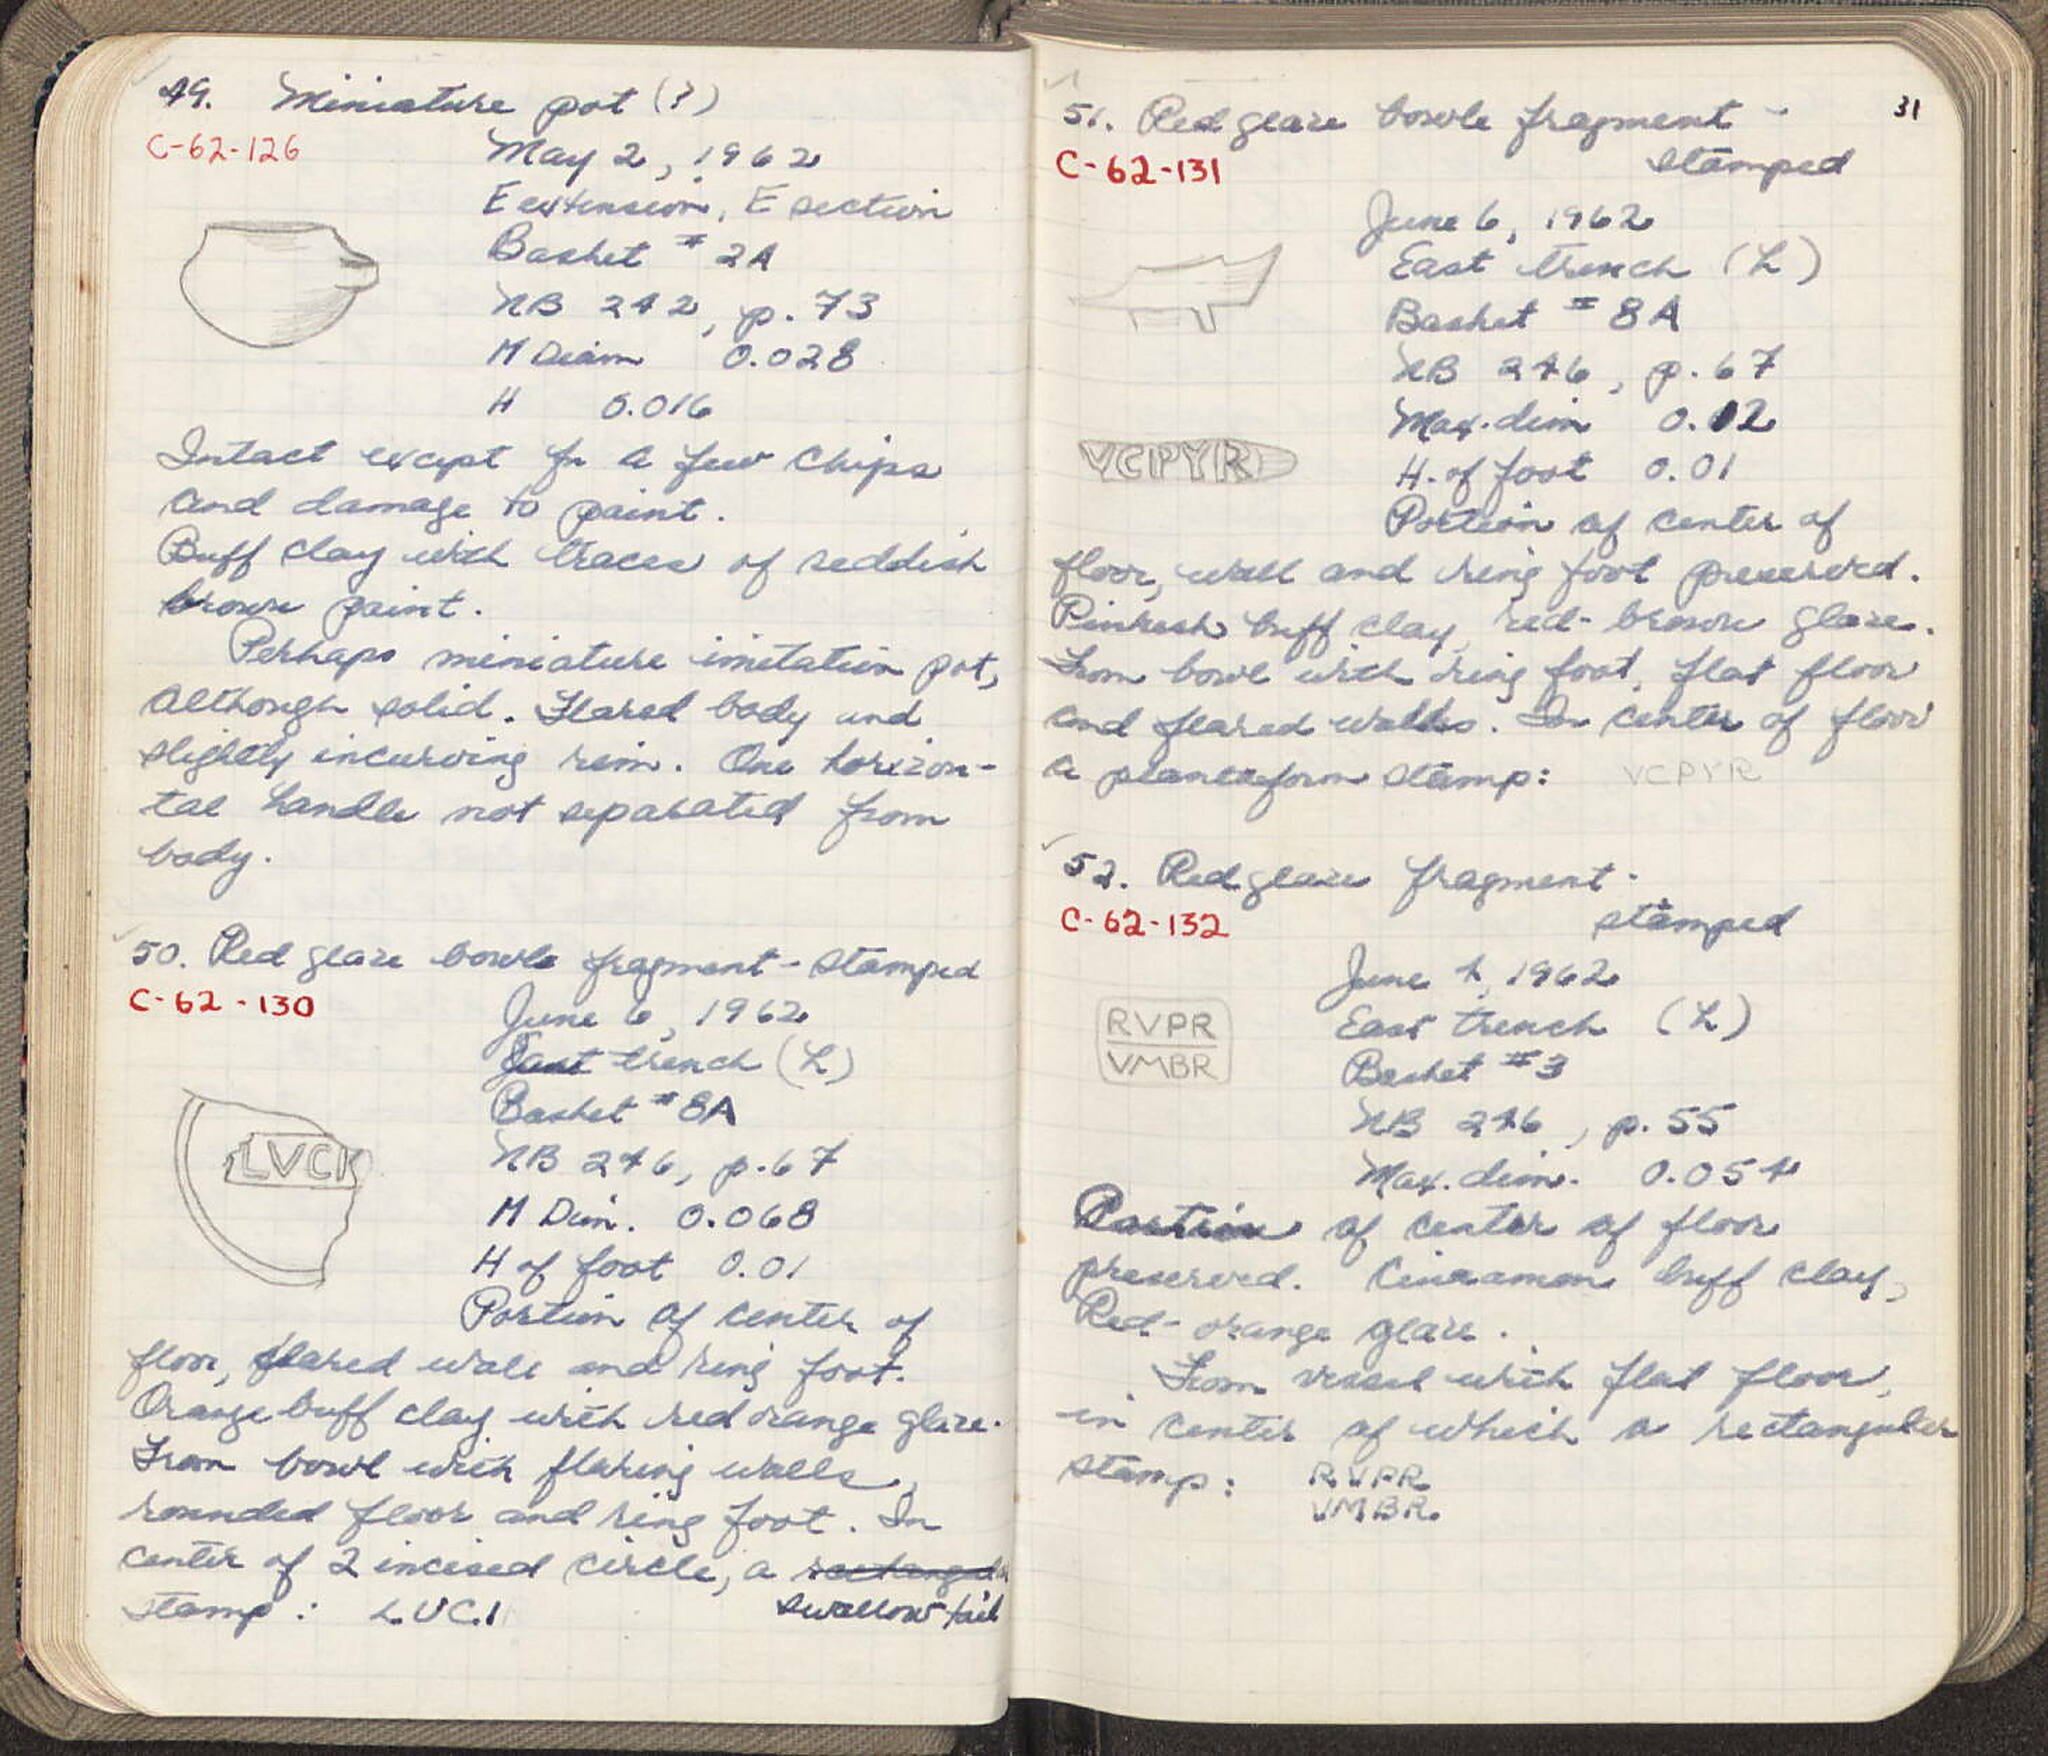 49. Miniature pot (?)
C-62-126
May 2, 1962
E extension, E section
Basket # 2A
NB 242, p. 73
M Diam 0.028
H 0.016
Intact except for a few chips
and damage to paint.
Buff clay with traces of reddish
brown paint.
Perhaps miniature imitation pot,
although solid. Flared body and
slightly incurving rim. One horizon-
tal handle not separated from
body.
50. Red glaze bowl fragment - stamped
C-62-130
June 6, 1962
East trench (L)
Basket # 8A
LVCI
NB 246, p. 67
M Dim. 0.068
H of foot 0.01
Portion of center of
floor, flared wall and ring foot.
Orange buff clay with red orange glaze.
From bowl with flaring walls,
rounded floor and ring foot. In
center of 2 incised circle, a rectangular
swallow tail
stamp: L.VC.I
31
51. Red glaze bowl fragment -
stamped
C-62-131
June 6, 1962
East trench (L)
Basket # 8A
NB 246, p. 67
Max. dim 0.12
VCPYR
H. of foot 0.01
Portion of center of
floor, wall and ring foot preserved.
Pinkish buff clay, red-brown glaze.
From bowl with ring foot, flat floor
and flared walls. In center of floor
a planta form stamp: VCPYR
52. Red glaze fragment -
stamped
C-62-132
June 4, 1962
RVPR
VMBR
East trench (L)
Basket # 3
NB 246, p. 55
Max. dim. 0.054
Portion of center of floor
preserved. Cinnamon buff clay,
Red-orange glaze.
From vessel with flat floor,
in center of which a rectangular
stamp: RVPR
VMBR.